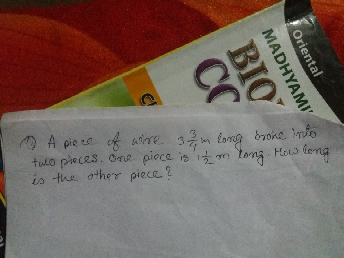 Oriental
MADHYAMI
BIO
CO
1) A piece of wire 3 3/4 m long broke into
two pieces. One piece is 1 1/2 m long. How long
is the other piece?